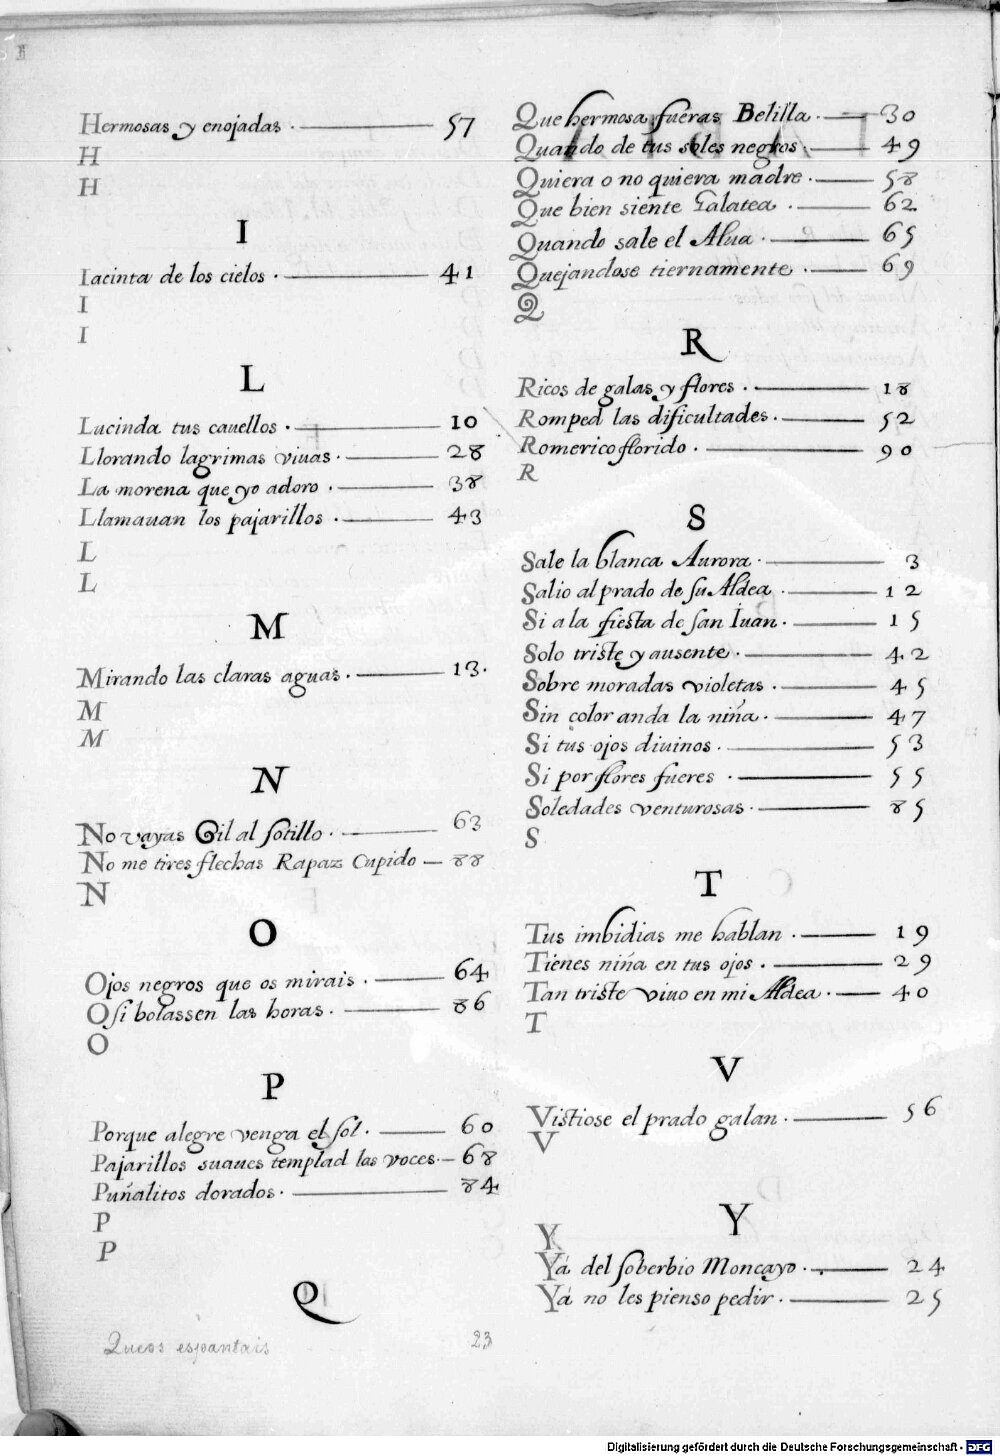 Hermosas y enojadas · 57
H
H
I
Iacinta de los cielos · 41
I
I
L
Lucinda tus cauellos · 10
Llorando lagrimas viuas · 28
La morena que yo adoro · 38
Llamauan los pajarillos · 43
L
L
M
Mirando las claras aguas · 13.
M
M
N
No vayas Gil al sotillo · 63
No me tires flechas Rapaz Cupido 88
N
O
Ojos negros que os mirais · 64
O si bolassen las horas · 86
O
P
Porque alegre venga el sol · 60
Pajarillos suaues templad las voces · 68
Puñalitos dorados · 84
P
P
Q
Queos espantais 23
Que hermosa fueras Belilla · 30
Quando de tus soles negros · 49
Quiera o no quiera madre · 58
Que bien siente Galatea · 62
Quando sale el Alua · 65
Quejandose tiernamente · 69
Q
R
Ricos de galas y flores · 18
Romped las dificultades · 52
Romerico florido · 90
R
S
Sale la blanca Aurora · 3
Salio al prado de su Aldea · 12
Si a la fiesta de san Iuan · 15
Solo triste y ausente · 42
Sobre moradas violetas · 45
Sin color anda la niña · 47
Si tus ojos diuinos · 53
Si por flores fueres · 55
Soledades venturosas · 85
S
T
Tus imbidias me hablan · 19
Tienes niña en tus ojos · 29
Tan triste viuo en mi Aldea · 40
T
V
Vistiose el prado galan · 56
V
Y
Y
Yá del soberbio Moncayo · 24
Yá no les pienso pedir · 25
Digitalisierung gefördert durch die Deutsche Forschungsgemeinschaft - DFG